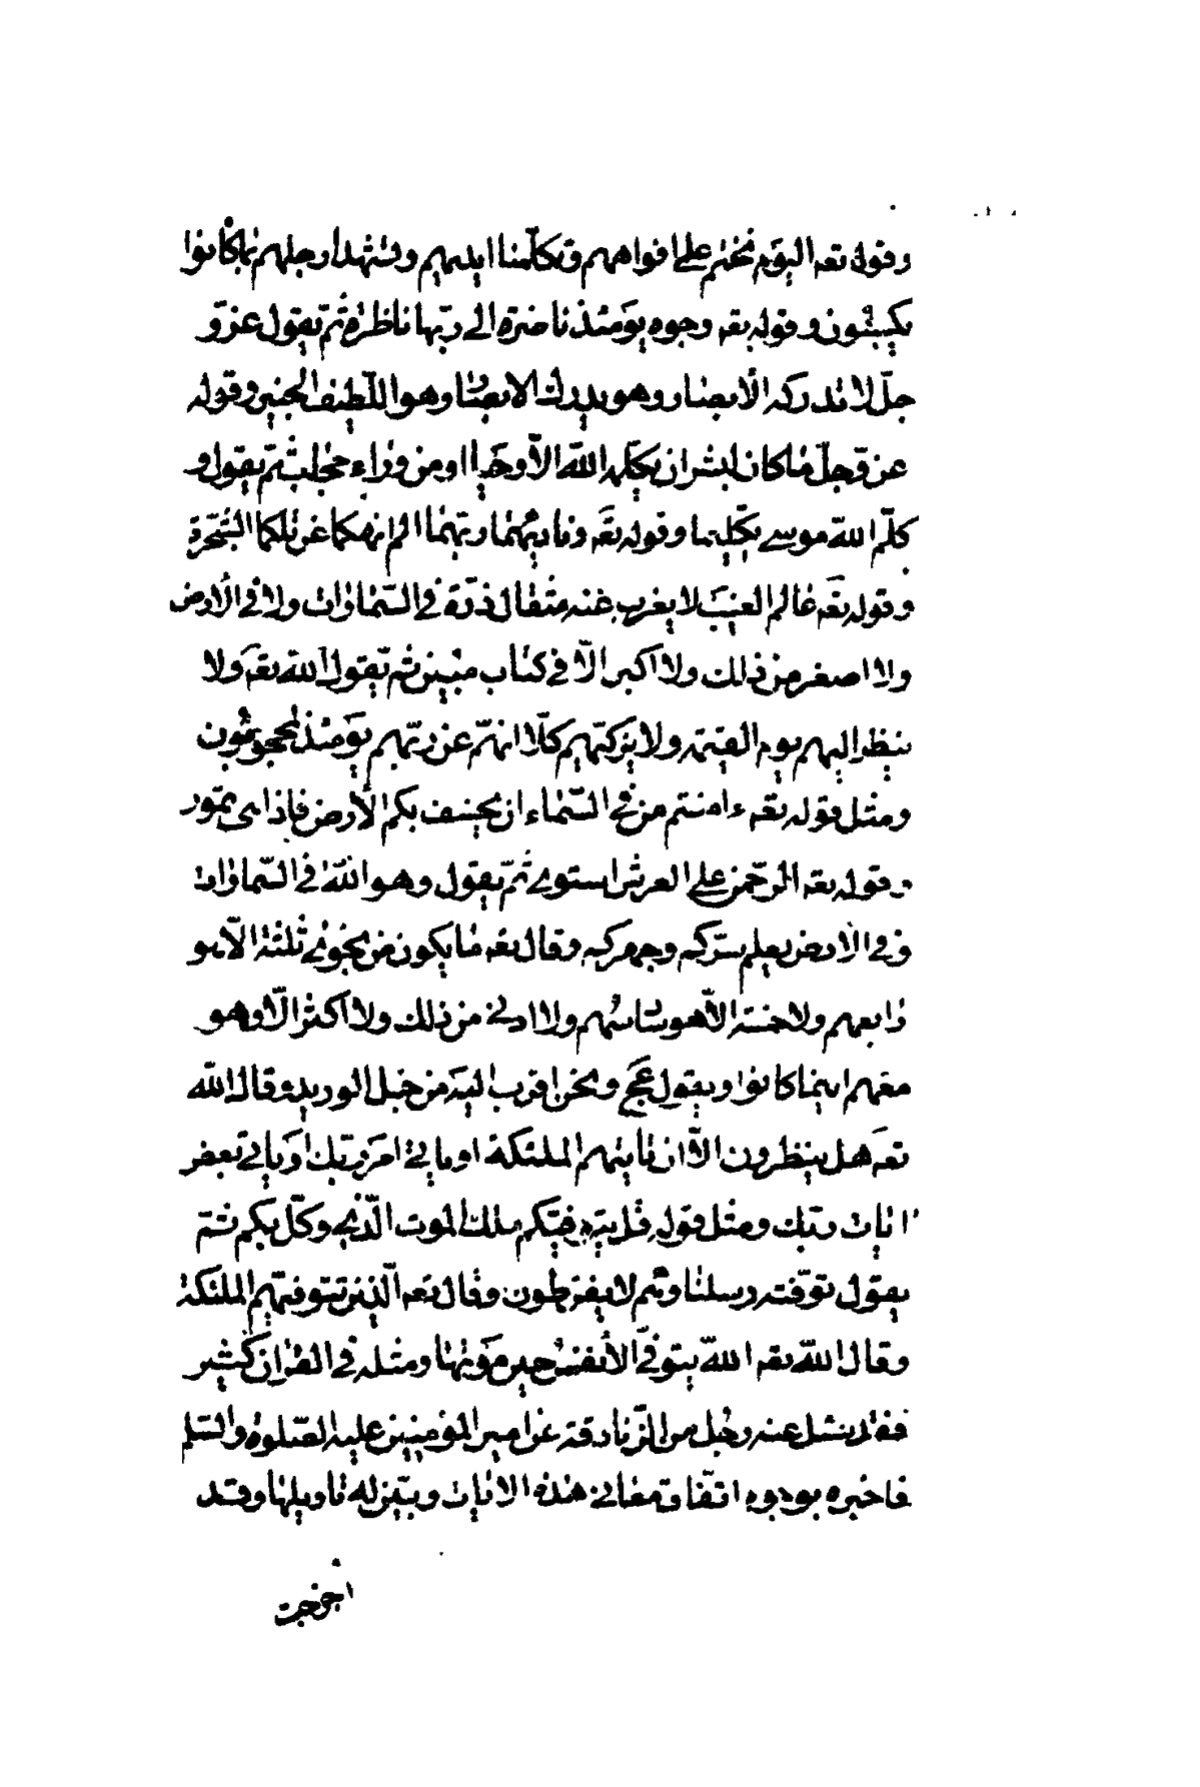 وقوله تعه اليوم نختم على افواههم وتكلمنا ايديهم وتشهد ارجلهم بما كانوا
يكسبون وقوله تعه وجوه يومئذ ناضرة الى ربها ناظرة ثم يقول عز و
جل لا تدركه الأبصار وهو يدرك الابصار وهو اللطيف الخبير وقوله
عز وجل ما كان لبشر ان يكلمه الله الا وحيا او من وراء حجاب ثم يقول و
كلم الله موسى تكليما وقوله تعه وناديهما ربهما الم انهكما عن تلكما الشجرة
وقوله تعه عالم الغيب لا يعزب عنه مثقال ذرة في السماوات ولا في الأرض
ولا اصغر من ذلك ولا اكبر الا في كتاب مبين ثم يقول الله تعه ولا
ينظر اليهم يوم القيمة ولا يزكيهم كلا انهم عن ربهم يومئذ لمحجوبون
ومثل قوله تعه ءامنتم من في السماء ان يخسف بكم الأرض فاذا هى تمور
وقوله تعه الرحمن على العرش استوى ثم يقول وهو الله في السماوات
وفي الارض يعلم سركم وجهركم وقال تعه ما يكون من نجوى ثلثة الا هو
رابعهم ولا خمسة الا هو سادسهم ولا ادنى من ذلك ولا اكثر الا وهو
معهم اينما كانوا ويقول عج ونحن اقرب اليه من حبل الوريد وقال الله
تعه هل ينظرون الا ان تاتيهم الملئكة او ياتي امر ربك او ياتي بعض
ايات ربك ومثل قوله قل يتوفيكم ملك الموت الذي وكل بكم ثم
يقول توفته رسلنا وهم لا يفرطون وقال تعه الذين تتوفيهم الملئكة
وقال الله تعه الله يتوفى الأنفس حين موتها ومثله في القران كثير
فقد سئل عنه رجل من الزنادقة عن امير المؤمنين عليه الصلوة والسلم
فاخبره بوجوه اتفاق معاني هذه الايات وبين له تاويلها وقد
اخرجت